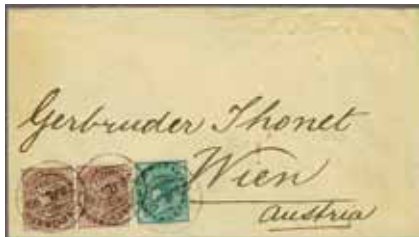 Gerbruder Thonet
Wien
Austria